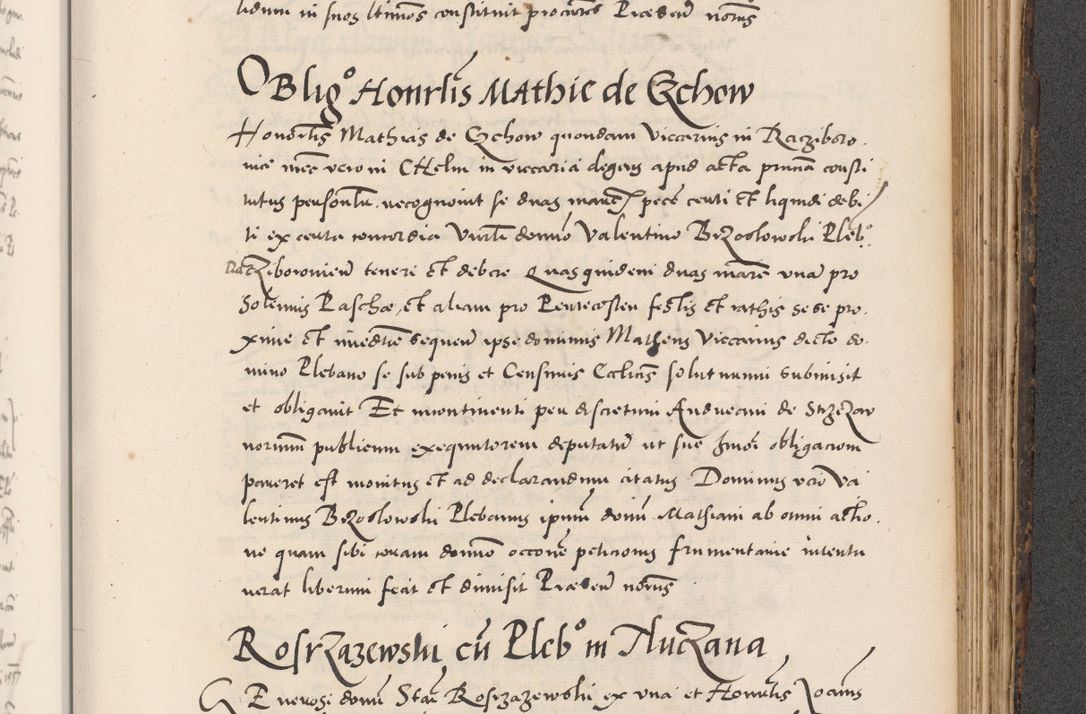 lidum in suos ltimos constituit procutores Præsen notus
OBligo Honrlis MAthie de Czchow
Honorlis Mathias de Czchow quondam viccarius in Racziboro.
nie nūc vero in CHelm in viccaria degens apud acta pnnā consti
tutus personlr. recognouit se duas marcas pecc centi et liquidi debi
ti ex certa concordia Virtli domino Valentino Brzoslowski Plebo
Racziboronien tenere et debere Quas quidem duas marc vnā pro
Solennis Paschæ, et aliam pro Pentecosten festis et rathis sese pro.
xime et inedite sequen ipse dominus Matheus Viccarius dicto do.
mino Plebano se sub penis et Censuris Ecclicis soluturum submisit
et obligauit Et incontinenti per discretum Andream de Strzezow
notum publicum exequutorem deputatū ut sue hmoi obligacioni
pareret est monitus et ad declarandum citatus Dominus vero Va
lentinus Brzoslowski Plebanus ipsum domi Mathiam ab omni actio.
ne quam sibi coram domino occone peticionis frumentarie intenta
uerat liberum fecit et dimisit Præsen notus
Rosrzazewski cū Plebo in Tluczana
GEnerosi domi Stas Roszazewski ex vna et Honorlis Joanis